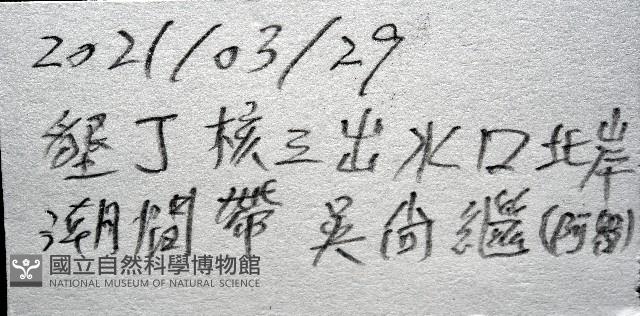 2021/03/29
墾丁核三出水口北岸
潮間帶 吳尚繼(阿
國立自然科學博物館
NATIONAL MUSEUM OF NATURAL SCIENCE